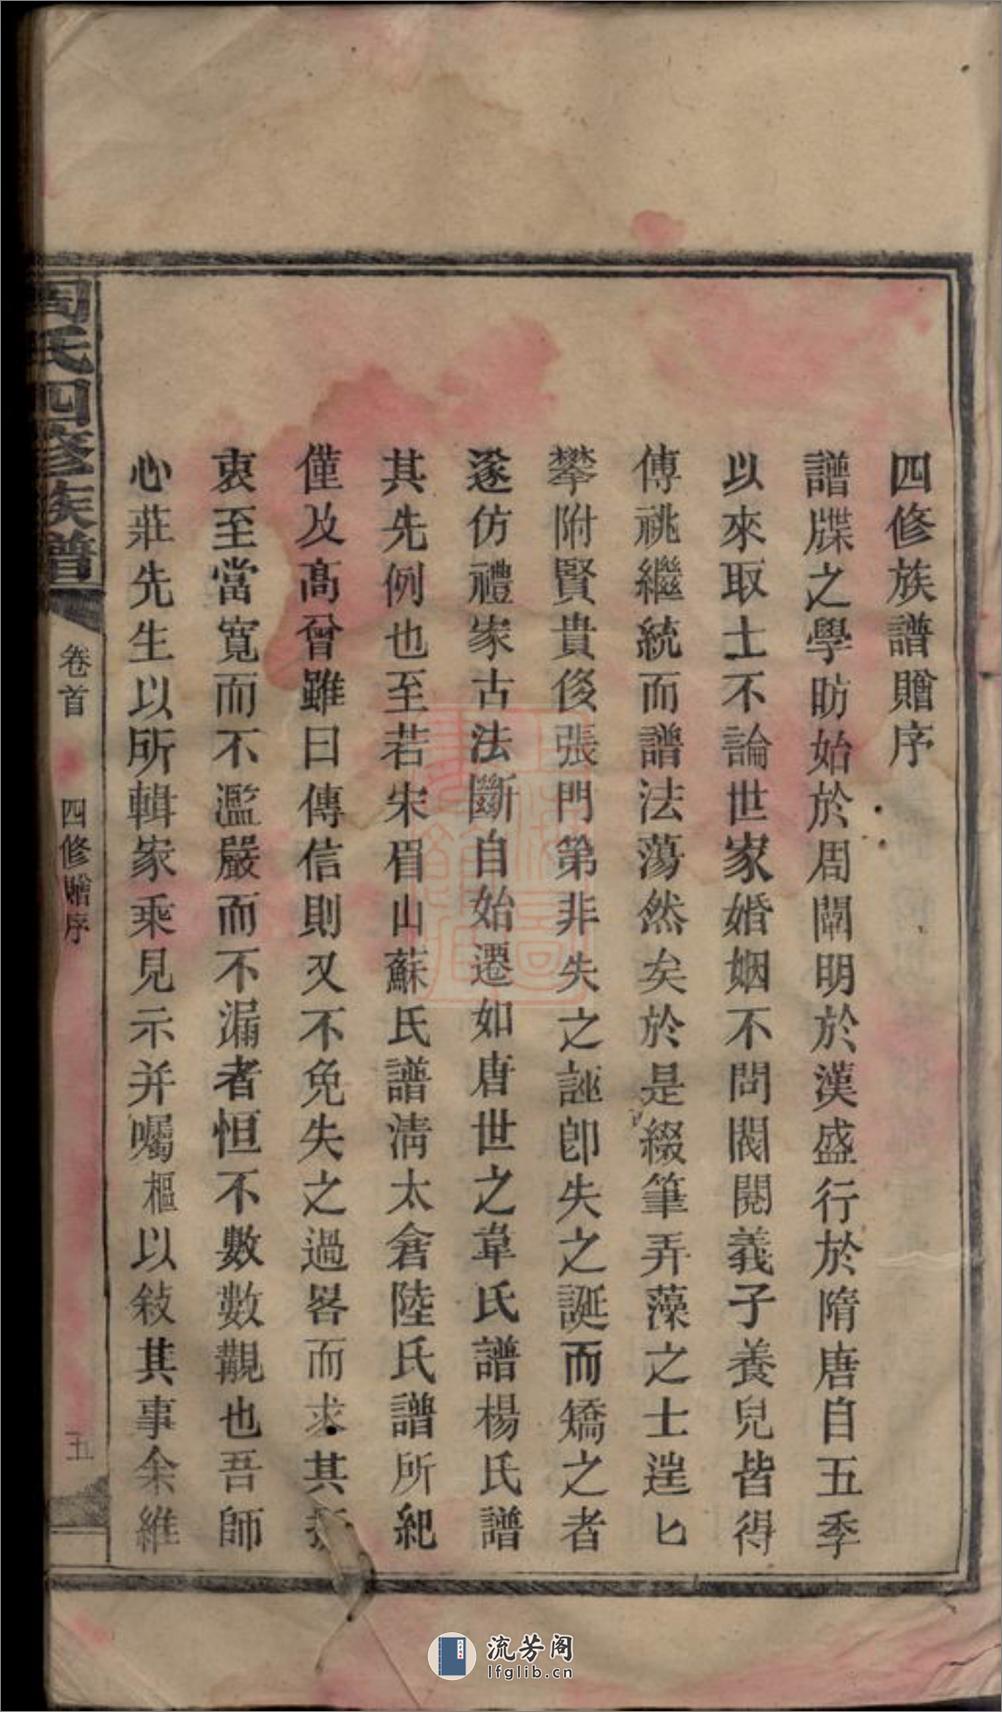 四修族譜贈序
譜牒之學昉始於周闡明於漢盛行於隋唐自五季
以來取士不論世家婚姻不問閥閱義子養兒皆得
傳祧繼統而譜法蕩然矣於是綴筆弄藻之士逞匕
攀附賢貴侈張門第非失之誣卽失之誕而矯之者
遂仿禮家古法斷自始遷如唐世之韋氏譜楊氏譜
其先例也至若宋眉山蘇氏譜淸太倉陸氏譜所紀
僅及高曾雖曰傳信則又不免失之過畧而求其
衷至當寬而不濫嚴而不漏者恒不數數覯也吾師
心莊先生以所輯家乘見示并囑樞以敍其事余維
周氏四修族譜
卷首
四修贈序
五
流芳阁
lfglib.cn